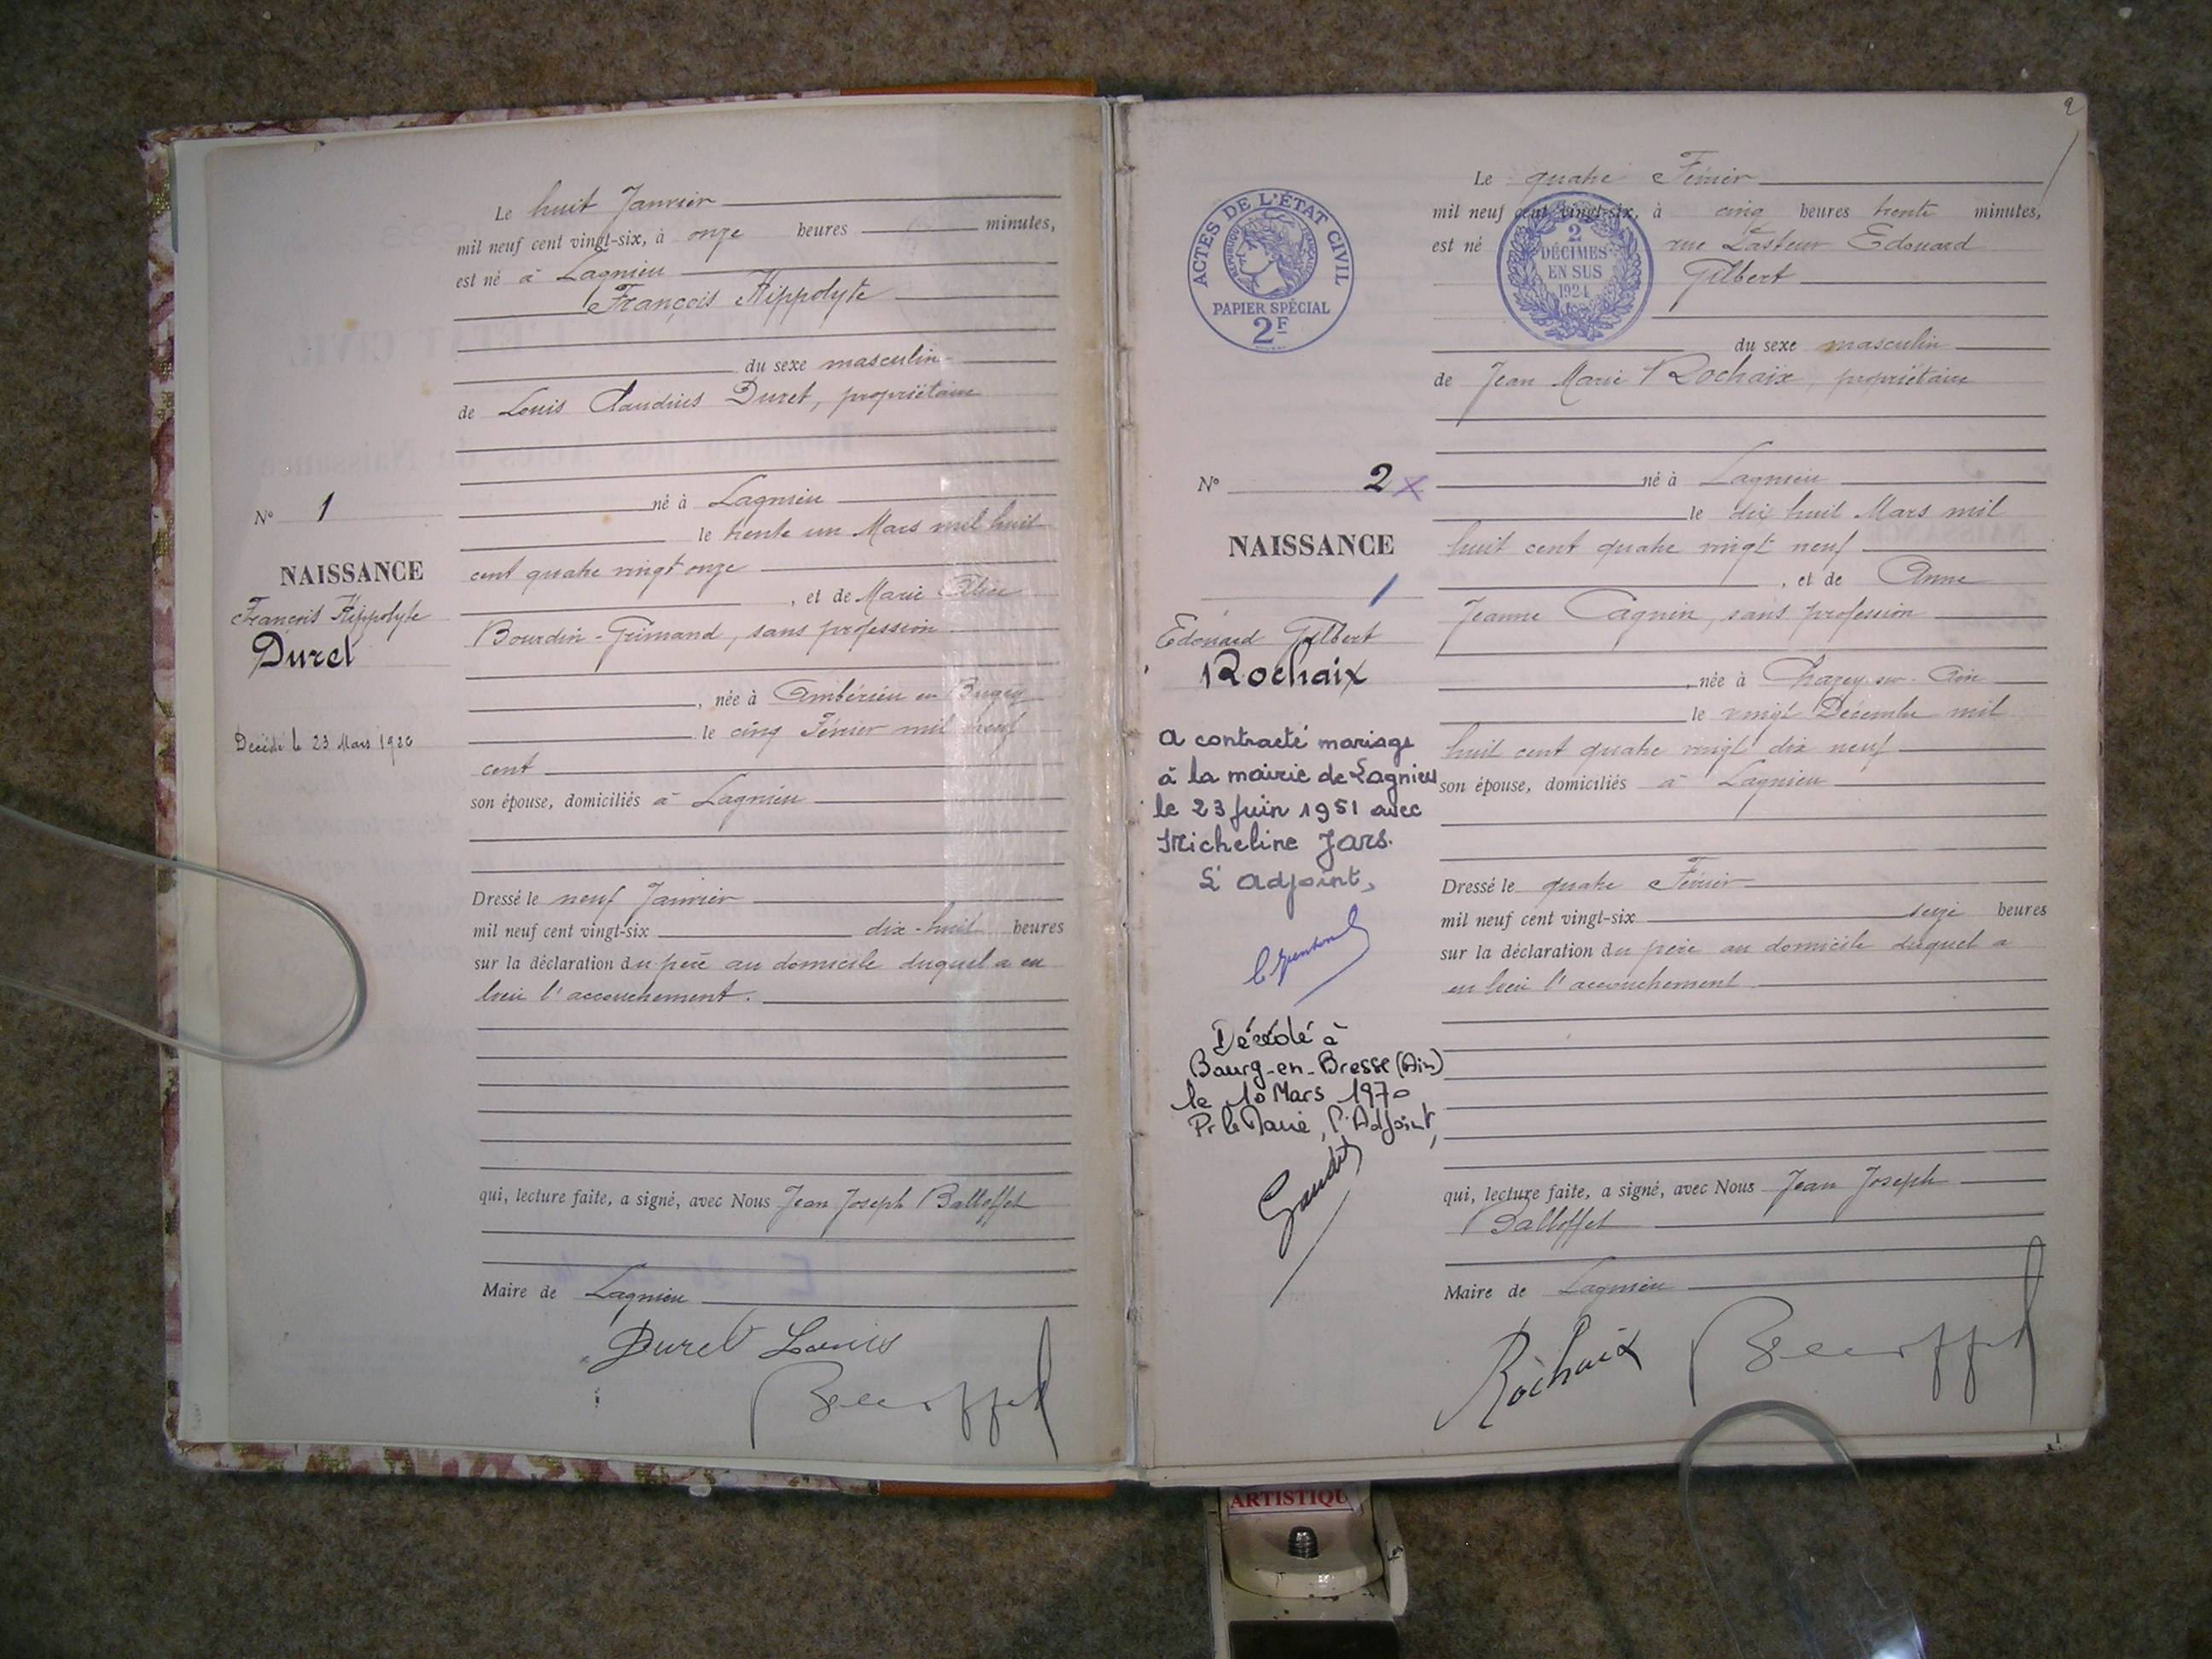 Le huit Janvier
mil neuf cent vingt-six, à onze heures minutes,
est né à Lagnieu
François Hippolyte
du sexe masculin
de Louis Claudius Duret, propriétaire
né à Lagnieu
le trente un Mars mil huit
cent quatre vingt onze
, et de Marie Alice
Bourdin-Grimaud, sans profession
, née à Ambérieu en Bugey
le cinq Février mil neuf
cent
son épouse, domiciliés à Lagnieu
Dressé le neuf Janvier
mil neuf cent vingt-six dix-huit heures
sur la déclaration du père au domicile duquel a eu
lieu l'accouchement.
qui, lecture faite, a signé, avec Nous Jean Joseph Balloffet
Maire de Lagnieu
Duret Louis
Balloffet
N° 1
NAISSANCE
François Hippolyte
Duret
Décédé le 23 Mars 1926
2
Le quatre Février
mil neuf cent vingt-six, à cinq heures trente minutes,
est né rue Pasteur Edouard
Gilbert
du sexe masculin
de Jean Marie Rochaix, propriétaire
né à Lagnieu
le dix huit Mars mil
huit cent quatre vingt neuf
, et de Anne
Jeanne Cagnin, sans profession
, née à Chazey-sur-Ain
le vingt Décembre mil
huit cent quatre vingt dix neuf
son épouse, domiciliés à Lagnieu
Dressé le quatre Février
mil neuf cent vingt-six seize heures
sur la déclaration du père au domicile duquel a
eu lieu l'accouchement
qui, lecture faite, a signé, avec Nous Jean Joseph
Balloffet
Maire de Lagnieu
Rochaix Balloffet
ACTES DE L'ÉTAT CIVIL
RÉPUBLIQUE FRANÇAISE
PAPIER SPÉCIAL
2F
2
DÉCIMES
EN SUS
1924
N° 2
NAISSANCE
Edouard Gilbert
Rochaix
a contracté mariage
à la mairie de Lagnieu
le 23 Juin 1951 avec
Micheline Jars.
L'adjoint,
Décédé à
Bourg-en-Bresse (Ain)
le 10 Mars 1970
Pr le Maire, l'Adjoint,
ARTISTIQU